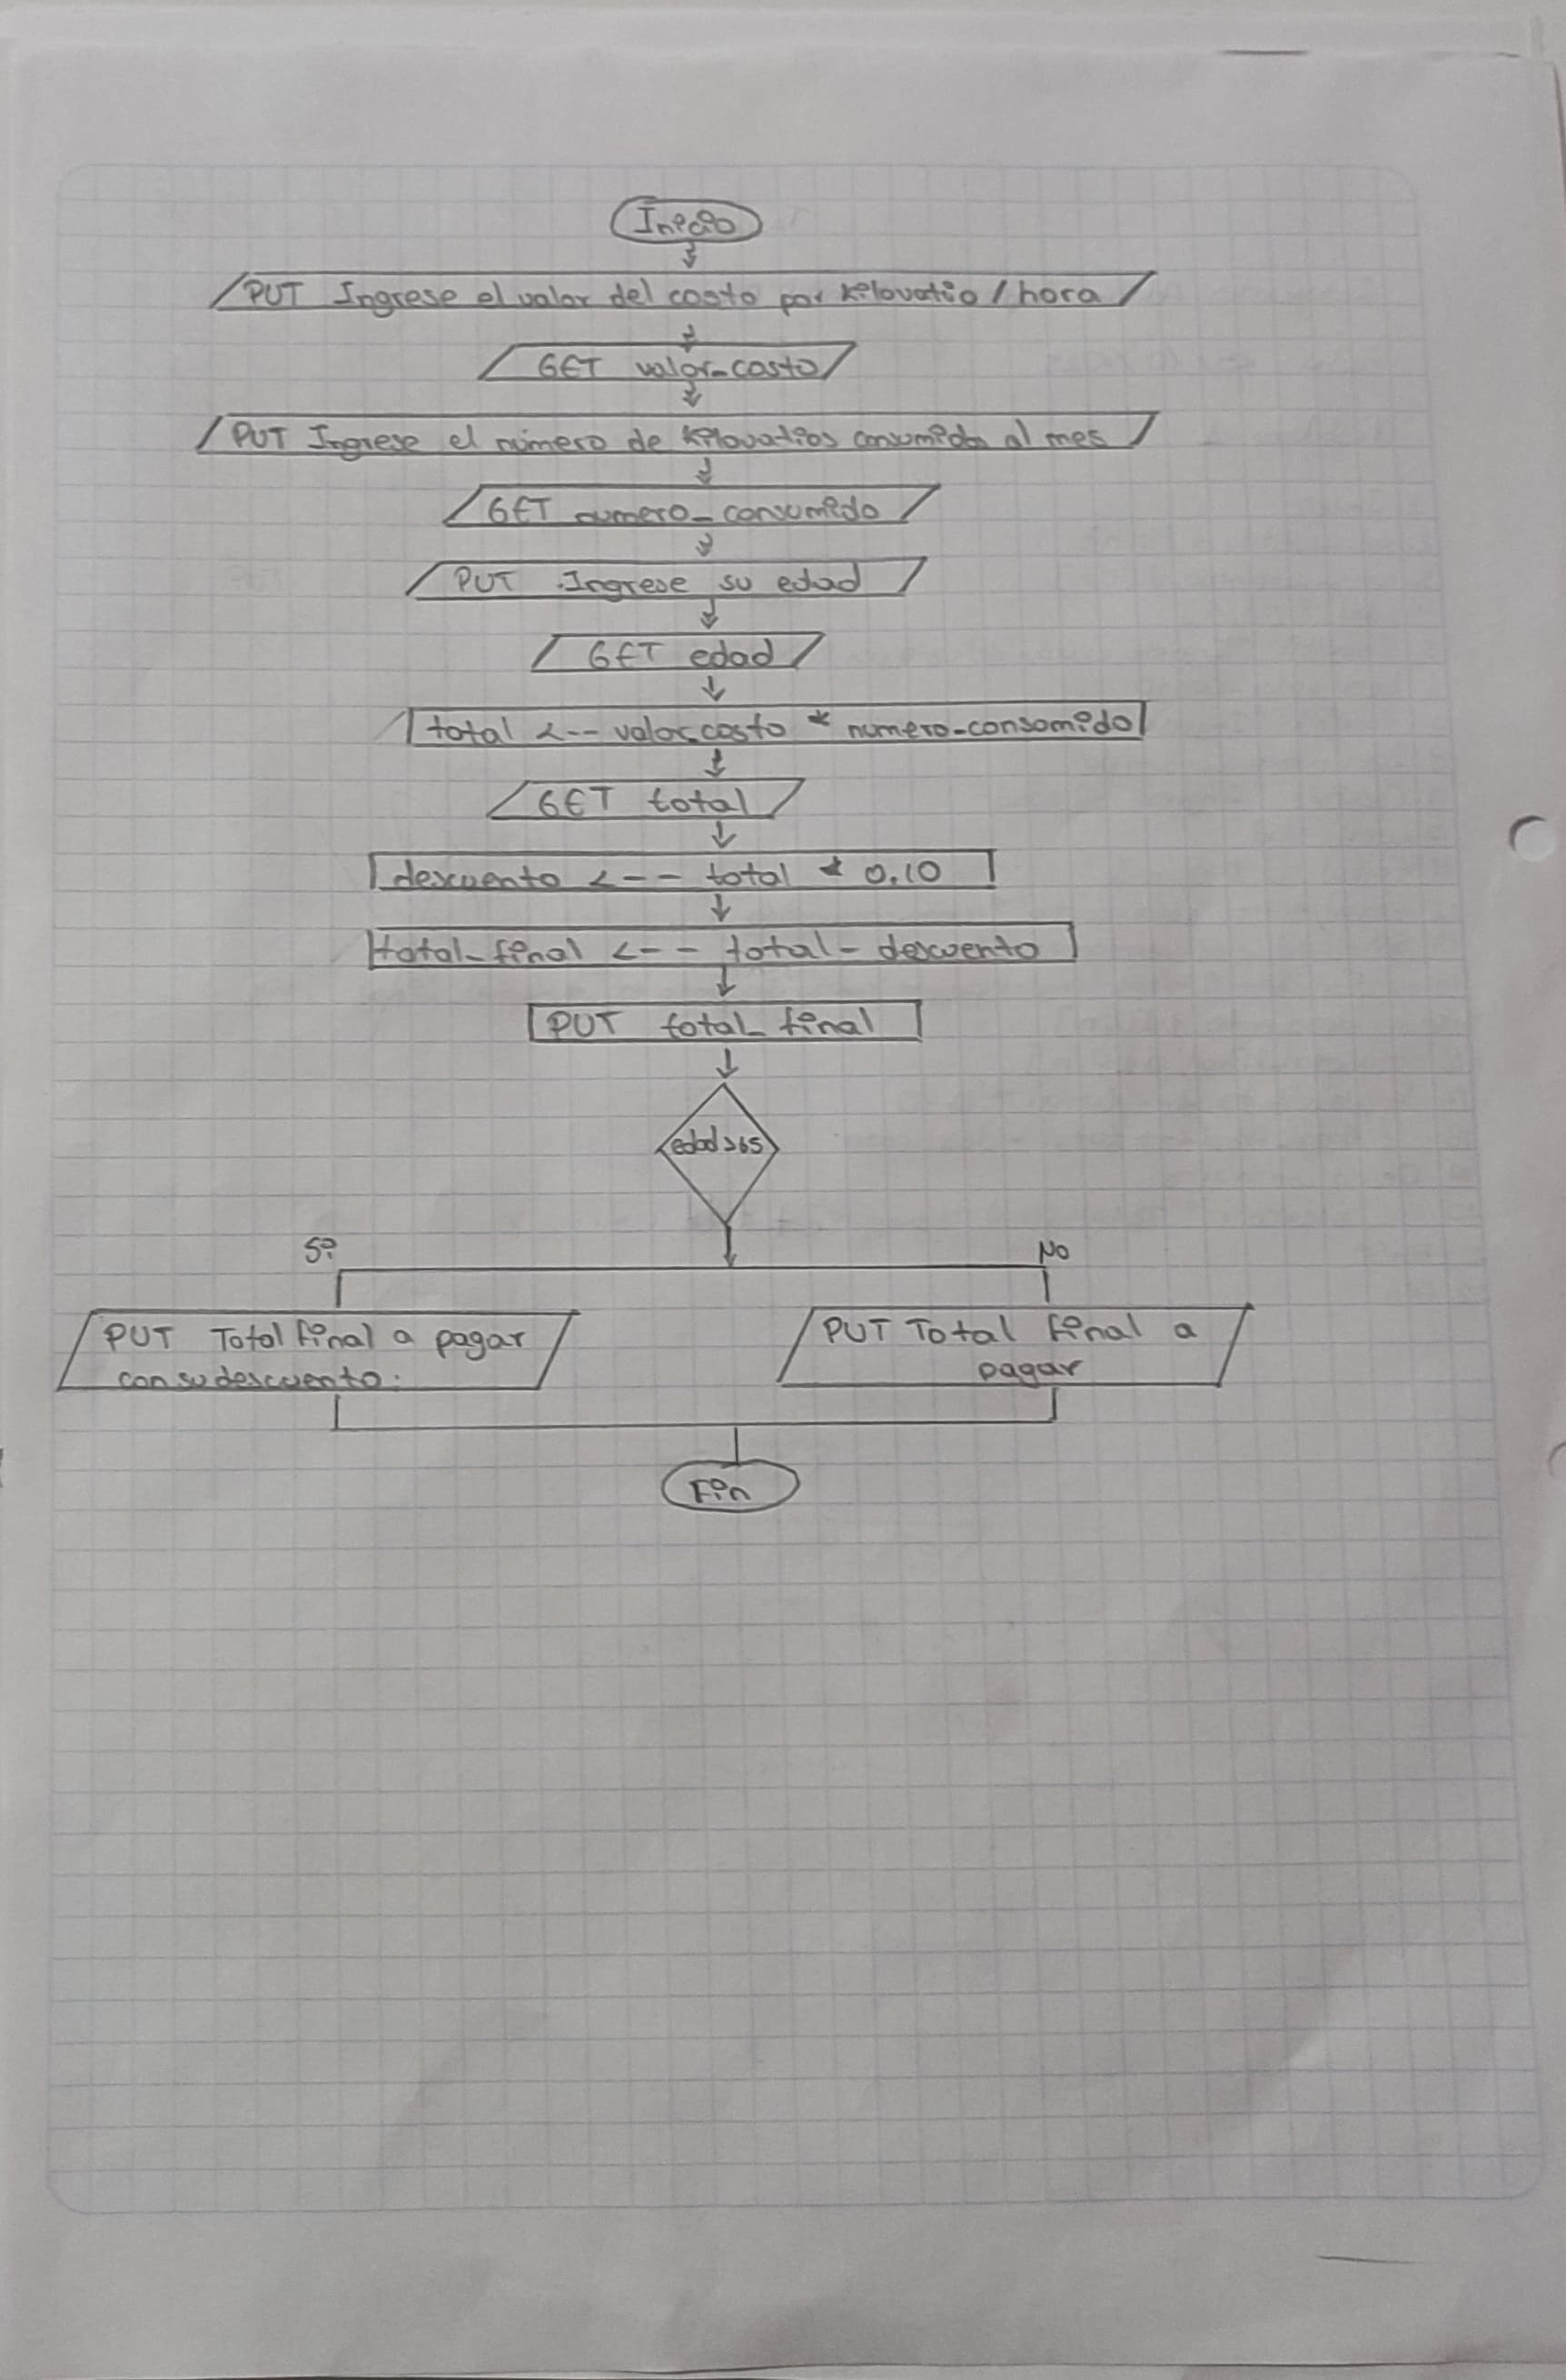 Inicio
PUT Ingrese el valor del costo por kilovatio / hora
GET valor_costo
PUT Ingrese el número de kilovatios consumido al mes
GET numero_consumido
PUT Ingrese su edad
GET edad
total <-- valor_costo * numero-consomido
GET total
descuento <-- total * 0.10
total_final <-- total - descuento
PUT total_final
edad>65
Si
No
PUT Total final a pagar
con su descuento.
PUT Total final a
pagar
Fin